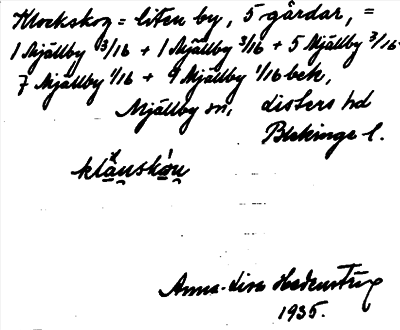 Klockskog = liten by, 5 gårdar, =
1 Mjällby 3/16 + 1 Mjällby 3/16 + 5 Mjällby 3/16
7 Mjällby 1/16 + 9 Mjällby 1/16 bek,
Mjällby sn, Listers hd
Blekinge l.
klåuskåu
Anna-Lisa Hedenstrüg
1935.